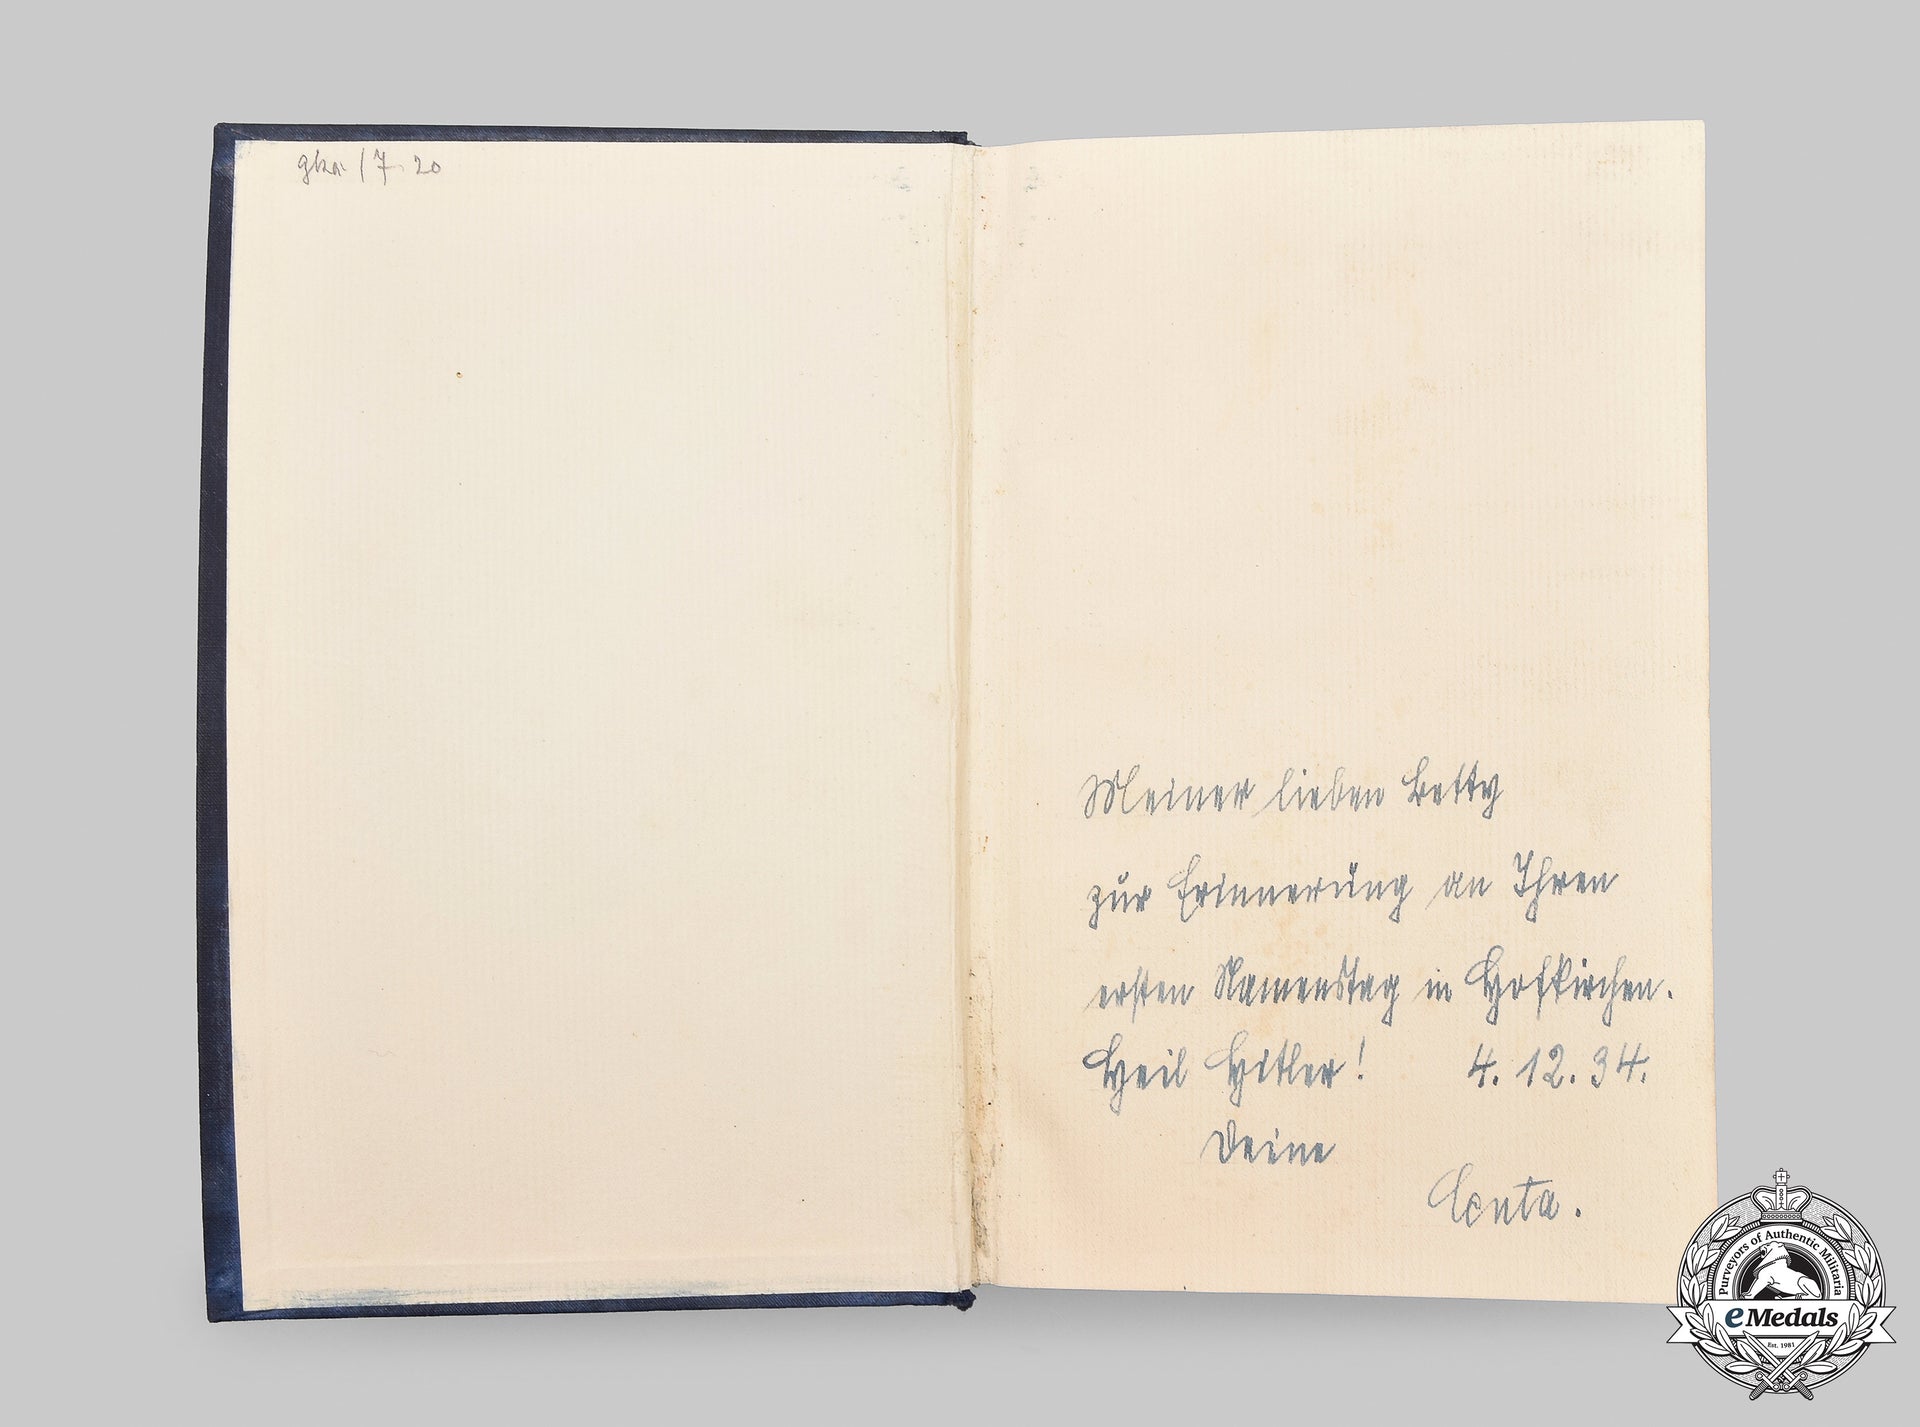 7.20
Meiner lieben Betty
zur Erinnerung an Ihren
ersten Namenstag in Hofkirchen.
Heil Hitler! 4.12.34.
Deine
Centa.
Purveyors of Authentic Militaria
eMedals
Est. 1981